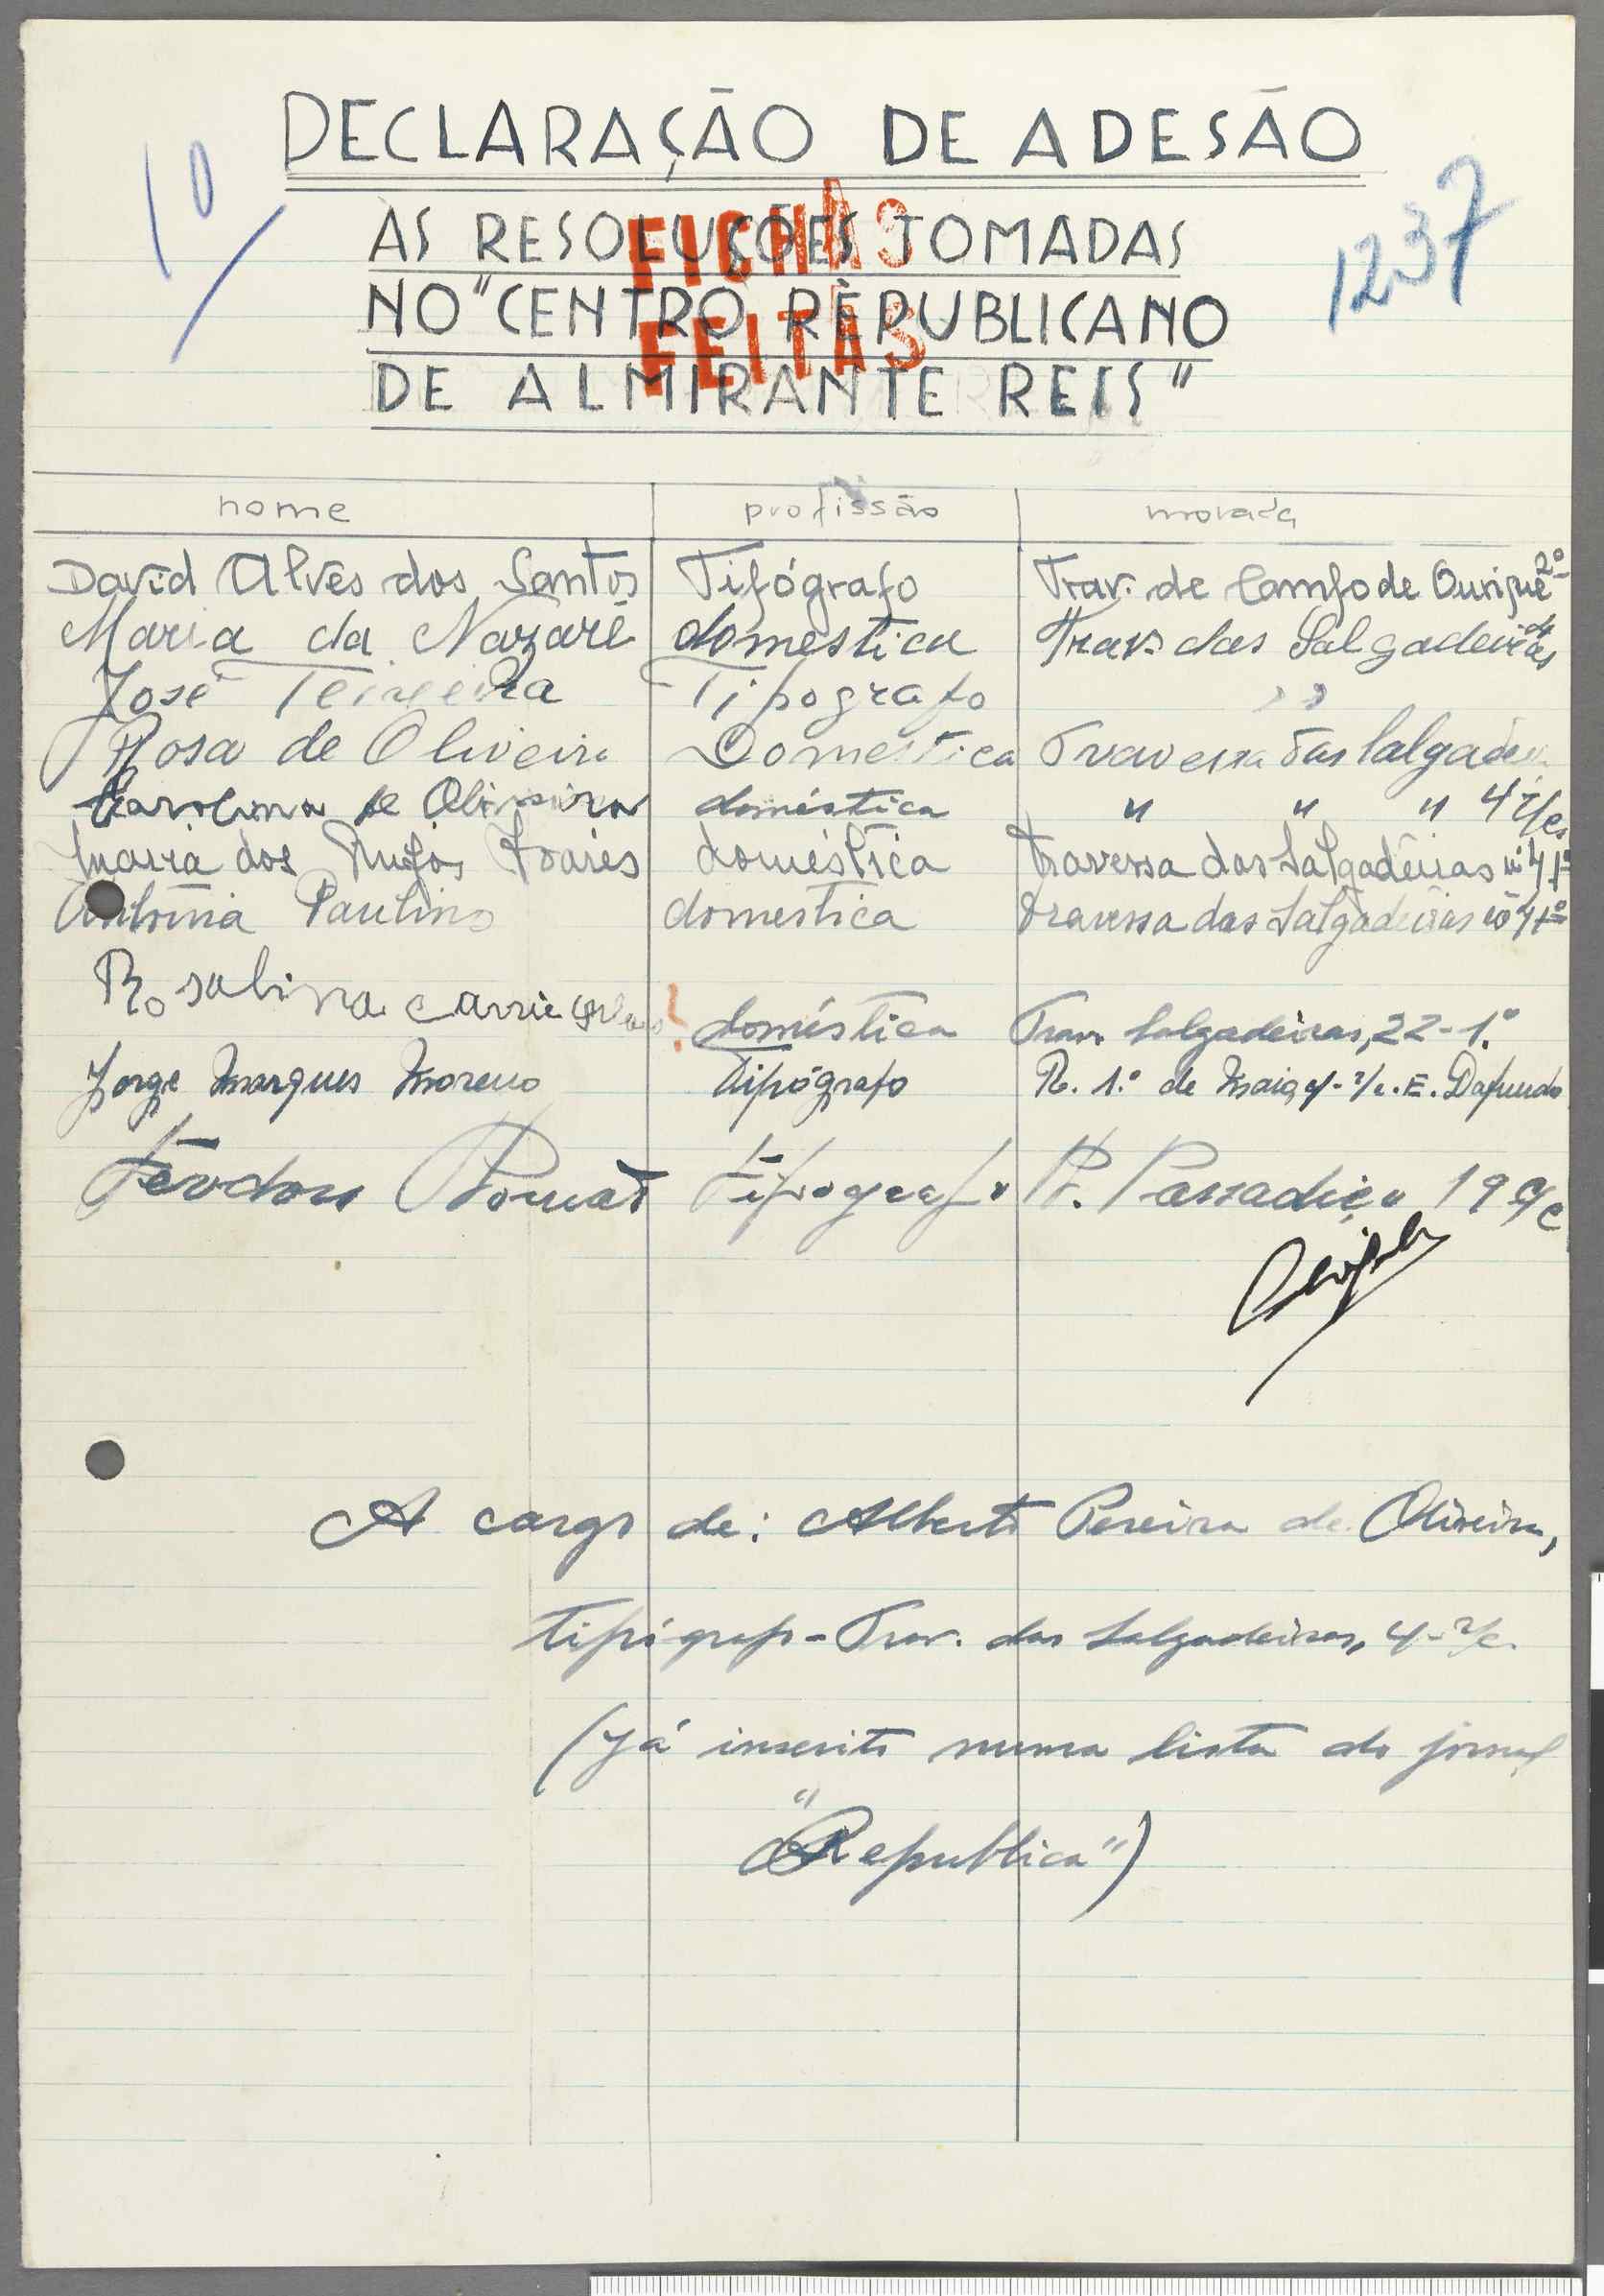 DECLARAÇÃO DE ADESÃO
10
ÀS RESOLUÇÕES TOMADAS
1237
FICHAS
NO "CENTRO REPUBLICANO
FEITAS
DE ALMIRANTE REIS"
nome profissão morada
David Alves dos Santos Tipógrafo Trav. de Campo de Ourique 2º
Maria da Nazaré domestica Trav. das Salgadeiras
José Teixeira Tipografo " "
Rosa de Oliveira Domestica Travessa das Salgadeiras
Carolina de Oliveira doméstica " " " 4 r/c
Maria dos Soares doméstica Travessa das Salgadeiras nº 4 1º
Antónia Paulino domestica travessa das Salgadeiras nº 4 1º
Rosalina ? doméstica Trav. Salgadeiras, 22-1.º
Jorge Marques Moreno Tipógrafo R. 1.º de Maio, r/c. E. Dafundo
Teodoro Tipografo R. Passadiço 19 r/c
A cargo de: Alberto Pereira de Oliveira,
tipógrafo - Trav. das Salgadeiras, 4-r/c.
(Já inscrito numa lista do jornal
"Republica")